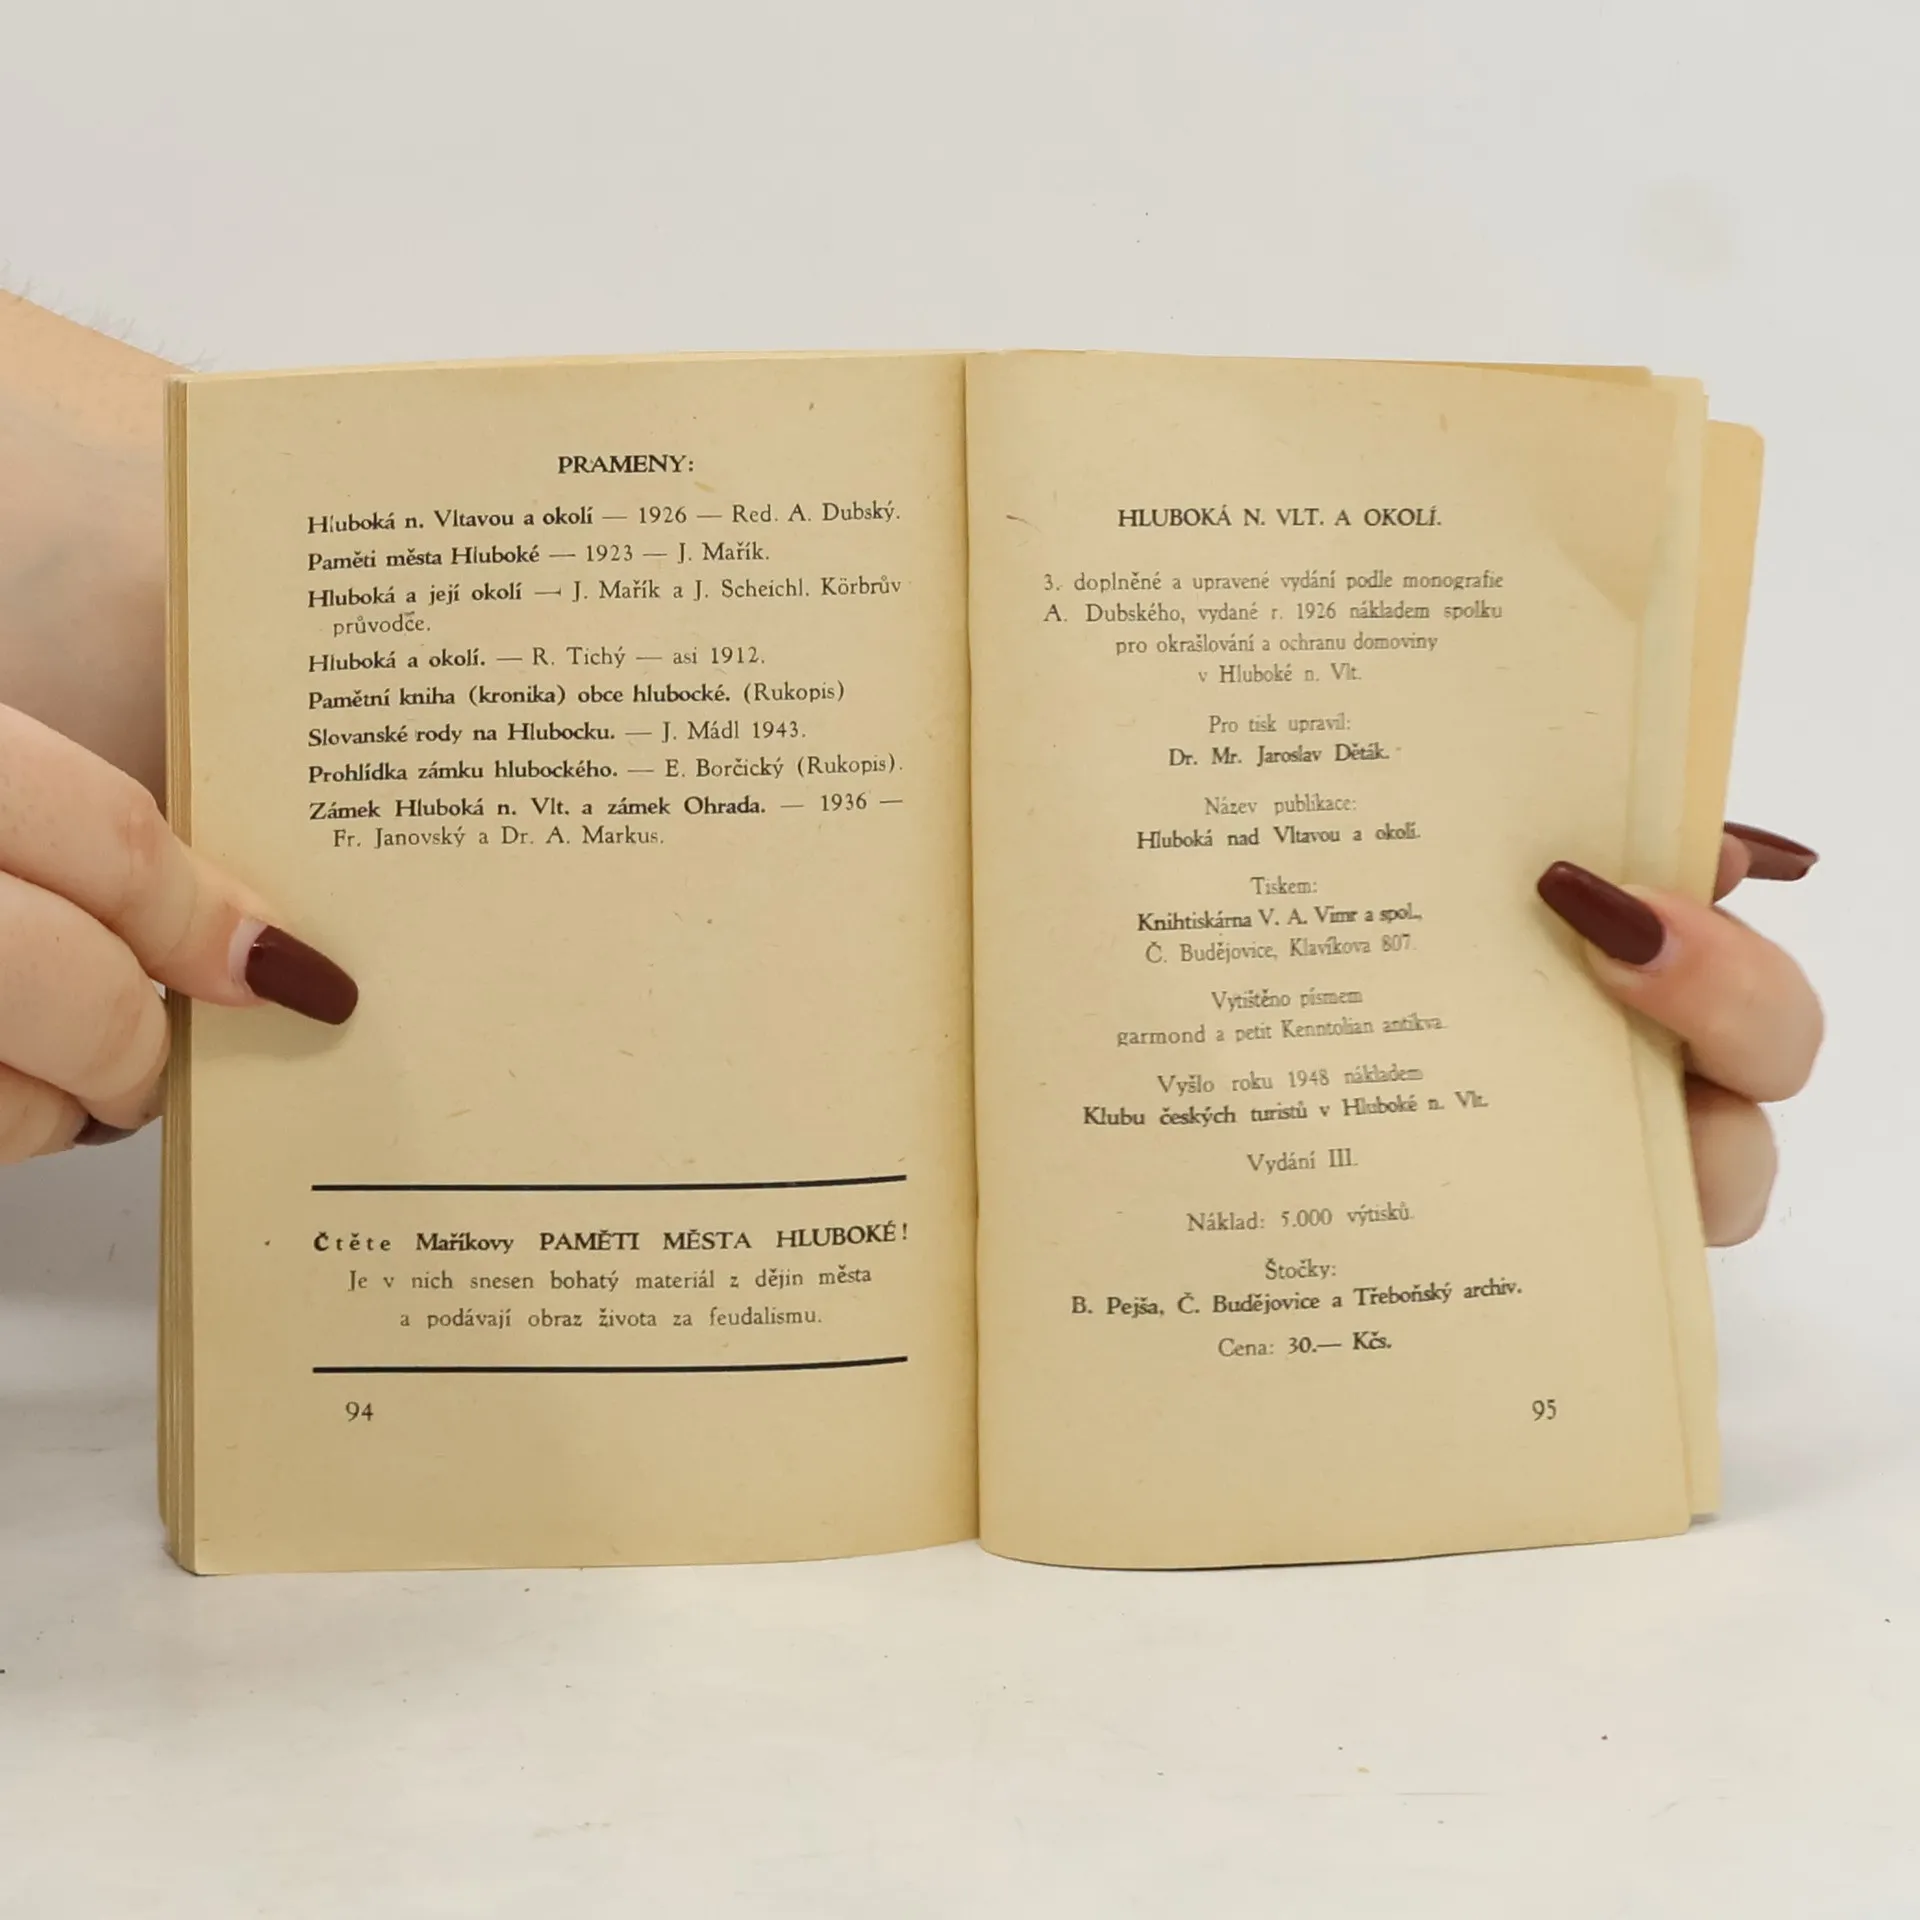 PRAMENY:
Hluboká n. Vltavou a okolí — 1926 — Red. A. Dubský.
Paměti města Hluboké — 1923 — J. Mařík.
Hluboká a její okolí — J. Mařík a J. Scheichl. Körbrův
průvodce.
Hluboká a okolí. — R. Tichý — asi 1912.
Pamětní kniha (kronika) obce hlubocké. (Rukopis)
Slovanské rody na Hlubocku. — J. Mádl 1943.
Prohlídka zámku hlubockého. — E. Borčický (Rukopis).
Zámek Hluboká n. Vlt. a zámek Ohrada. — 1936 —
Fr. Janovský a Dr. A. Markus.
Čtěte Maříkovy PAMĚTI MĚSTA HLUBOKÉ!
Je v nich snesen bohatý materiál z dějin města
a podávají obraz života za feudalismu.
94
HLUBOKÁ N. VLT. A OKOLÍ.
3. doplněné a upravené vydání podle monografie
A. Dubského, vydané r. 1926 nákladem spolku
pro okrašlování a ochranu domoviny
v Hluboké n. Vlt.
Pro tisk upravil:
Dr. Mr. Jaroslav Děták.
Název publikace:
Hluboká nad Vltavou a okolí.
Tiskem:
Knihtiskárna V. A. Vimr a spol.,
Č. Budějovice, Klavíkova 807.
Vytištěno písmem
garmond a petit Kenntolian antikva.
Vyšlo roku 1948 nákladem
Klubu českých turistů v Hluboké n. Vlt.
Vydání III.
Náklad: 5.000 výtisků.
Štočky:
B. Pejša, Č. Budějovice a Třeboňský archiv.
Cena: 30.— Kčs.
95